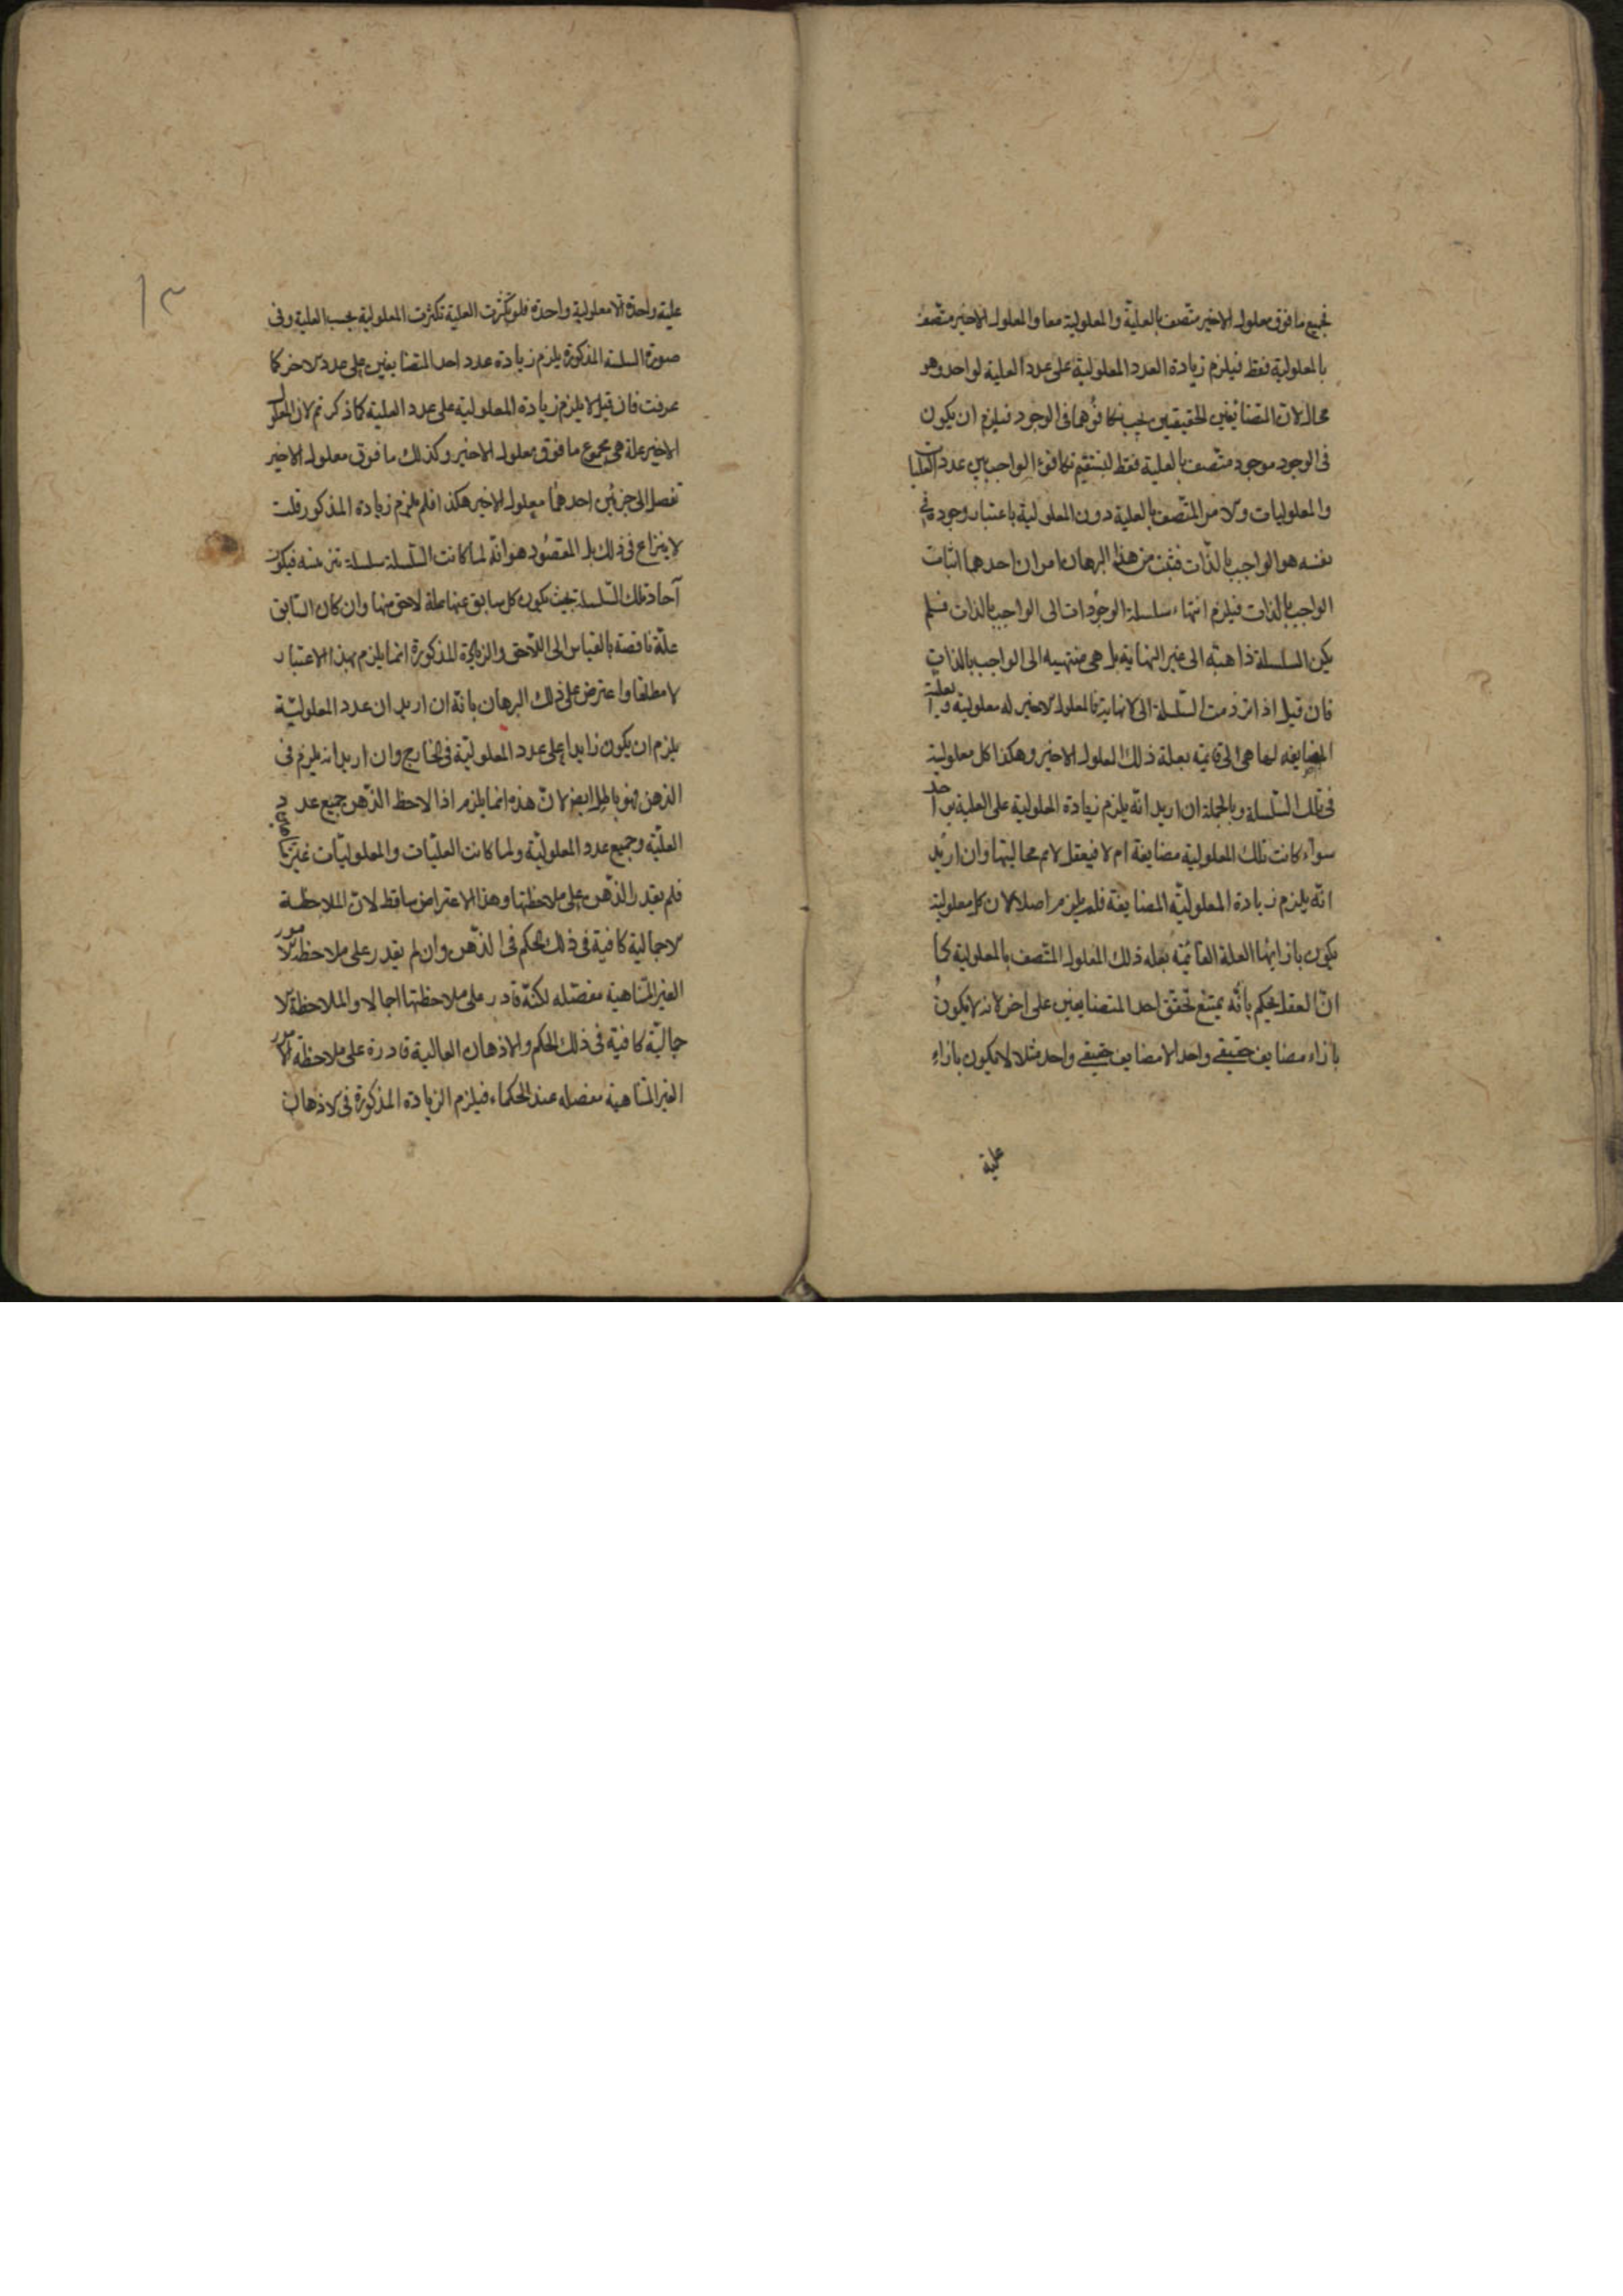 فجميع ما فوق معلول الاخير متصف بالعلية والمعلولية معا والمعلول الاخير متصف
بالمعلولية فقط فيلزم زيادة العدد المعلولية على عدد العلية لواحد وهو
محال لان المتضائفين الحقيقيين يجب تكافؤهما فى الوجود فيلزم ان يكون
فى الوجود موجود متصف بالعلية فقط ليستقيم تكافؤ الواجب بين عدد العليات
والمعلوليات والامر المتصف بالعلية دون المعلولية باعتبار وجوده فى
نفسه هو الواجب بالذات فثبت من هذا البرهان امران احدهما اثبات
الواجب بالذات فيلزم انتهاء سلسلة الوجودات الى الواجب بالذات فلم
يكن السلسلة ذاهبة الى غير النهاية بل هى منتهيه الى الواجب بالذات
فان قيل اذا ذهبت السلسلة الى لا نهاية فالمعلول الاخير له معلولية
المضايفه لها هى التى قايمة بعلة ذلك المعلول الاخير وهكذا كل معلولية
فى تلك السلسلة وبالجملة ان اريد انه يلزم زيادة المعلولية على العلية بواحد
سواء كانت تلك المعلولية مضايفة ام لا فيعقل لا يم محاليتها وان اريد
انه يلزم زيادة المعلولية المضايفة فلم يلزم اصلا لان كل معلولية
يكون بازايها العلة القائمة بعلة ذلك المعلول المتصف بالمعلولية كما
ان العقل يحكم بانه يمتنع تحقق احد المتضايفين على اخر لانه لا يكون
بازاء مضايف حقيقى واحد الا مضايف حقيقى واحد مثلا لا يكون بازاء
علية
١٣
علية واحدة الا معلولية واحدة فلو تكثرت العلية تكثرت المعلولية بحسب العلية وفى
صورة السلسة المذكورة يلزم زيادة عدد احد المتضايفين على عدد الاخر كما
عرفت فان قيل لا يلزم زيادة المعلولية على عدد العلية كما ذكرتم لان المعلول
الاخير علة هى مجموع ما فوق معلول الاخير وكذلك ما فوق معلول الاخير
تفصل الى جزئين احدهما معلول الاخير هكذا فلم يلزم زيادة المذكور قلت
لا ينزاع فى ذلك بل المقصود هو انه لما كانت السلسلة سلسلة فيكون
آحاد تلك السلسلة بحيث يكون كل سابق عنها علة لاحق منها وان كان السابق
علة ناقصة بالقياس الى اللاحق والزيادة المذكورة انما يلزم بهذا الاعتبار
لا مطلقا واعترض على ذلك البرهان بانه ان اريد ان عدد المعلولية
يلزم ان يكون زايدا على عدد المعلولية فى الخارج وان اريد انه يلزم فى
الذهن فهو باطل ايضا لان هذه انما يلزم اذا لاحظ الذهن جميع عدد
العلية وجميع عدد المعلولية ولما كانت العليات والمعلوليات غير متناهية
فلم يقدر الذهن على ملاحظتها وهذا الاعتراض ساقط لان الملاحظة
الاجمالية كافية فى ذلك الحكم فى الذهن وان لم يقدر على ملاحظة الامور
الغير المتناهية مفصله لكنه قادر على ملاحظتها اجمالا والملاحظة الا
جمالية كافية فى ذلك الحكم والاذهان العالية قادرة على ملاحظة الامور
الغير المتناهية مفصله عند الحكماء فيلزم الزيادة المذكورة فى الاذهان